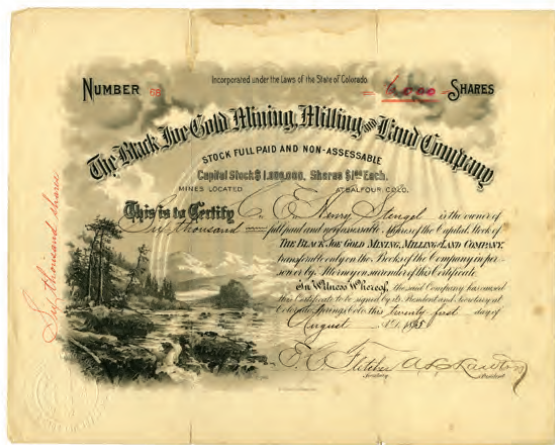 NUMBER 68
Incorporated under the Laws of the State of Colorado.
6,000 SHARES
The Black Joe Gold Mining, Milling and Land Company
STOCK FULL PAID AND NON-ASSESSABLE
Capital Stock $1,000,000, Shares $1.00 Each.
MINES LOCATED AT BALFOUR, COLO.
This is to Certify C. E. Henry Stengel is the owner of
Six thousand full paid and non-assessable Shares of the Capital Stock of
THE BLACK JOE GOLD MINING, MILLING AND LAND COMPANY,
transferable only on the Books of the Company in per-
son or by Attorney on surrender of this Certificate.
In Witness Whereof, the said Company has caused
this Certificate to be signed by its President and Secretary at
Colorado Springs Colo. this Twenty first day of
August A.D.
E. C. Fletcher
Secretary. President.
Six thousand shares